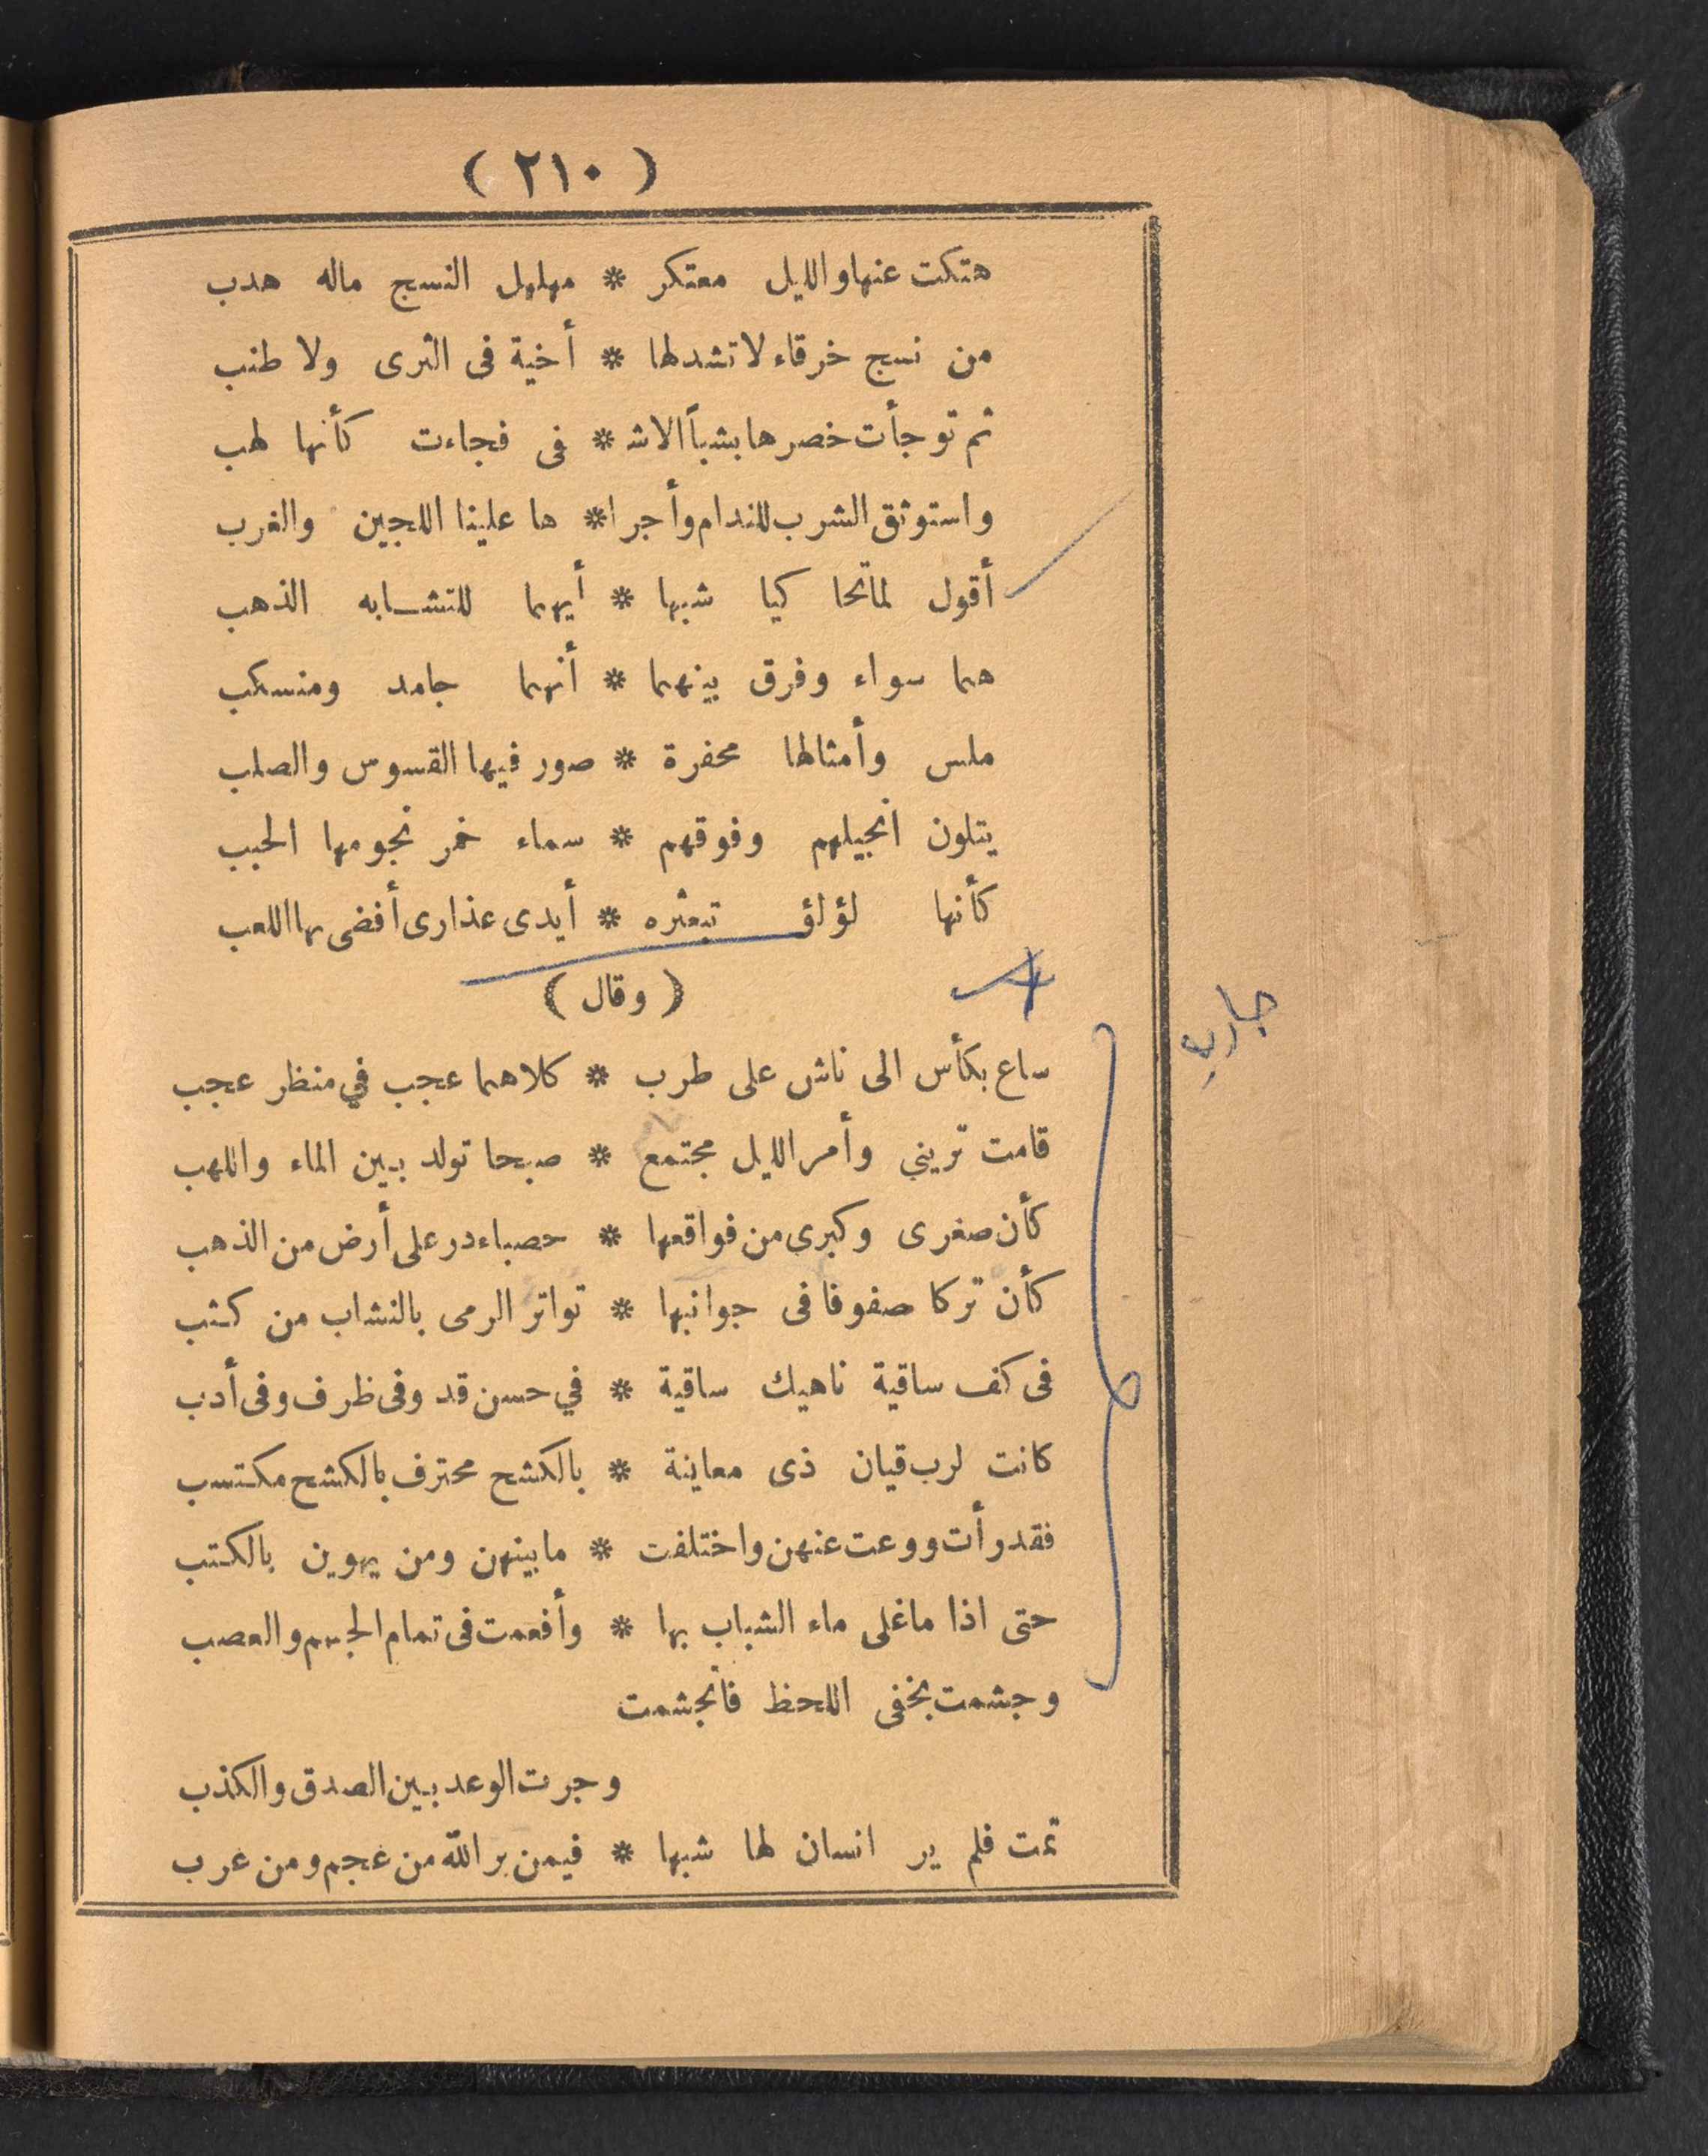 ( ٢١٠ )
هتكت عنها والليل معتكر * مهلهل النسج ماله هدب
من نسج خرقاء لا تشد لها * أخية فى الثرى ولا طنب
ثم توجأت خصرها بشبأ الاش * فى فجاءت كأنها لهب
واستوثق الشرب للندام وأجرا * ها علينا اللجين والغرب
أقول لما تحا كيا شبها * أيهما للتشابه الذهب
هما سواء وفرق بينهما * أنهما جامد ومنسكب
ملس وأمثالها محفرة * صور فيها القسوس والصلب
يتلون انجيلهم وفوقهم * سماء خمر نجومها الحبب
كأنها لؤلؤ تبعثره * أيدى عذارى أفضى بها اللعب
( وقال )
جارية
ساع بكأس الى ناش على طرب * كلاهما عجب في منظر عجب
قامت تريني وأمر الليل مجتمع * صبحا تولد بين الماء واللهب
كأن صغرى وكبرى من فواقعها * حصباء در على أرض من الذهب
كأن تركا صفوفا فى جوانبها * تواتر الرمى بالنشاب من كثب
فى كف ساقية ناهيك ساقية * في حسن قد وفى ظرف وفى أدب
كانت لرب قيان ذى معاينة * بالكشح محترف بالكشح مكتسب
فقد رأت ووعت عنهن واختلفت * ما بينهن ومن يهوين بالكتب
حتى اذا ما غلى ماء الشباب بها * وأفعمت فى تمام الجسم والعصب
وجشمت بخفى اللحظ فانجشمت
وجرت الوعد بين الصدق والكذب
تمت فلم ير انسان لها شبها * فيمن بر الله من عجم ومن عرب